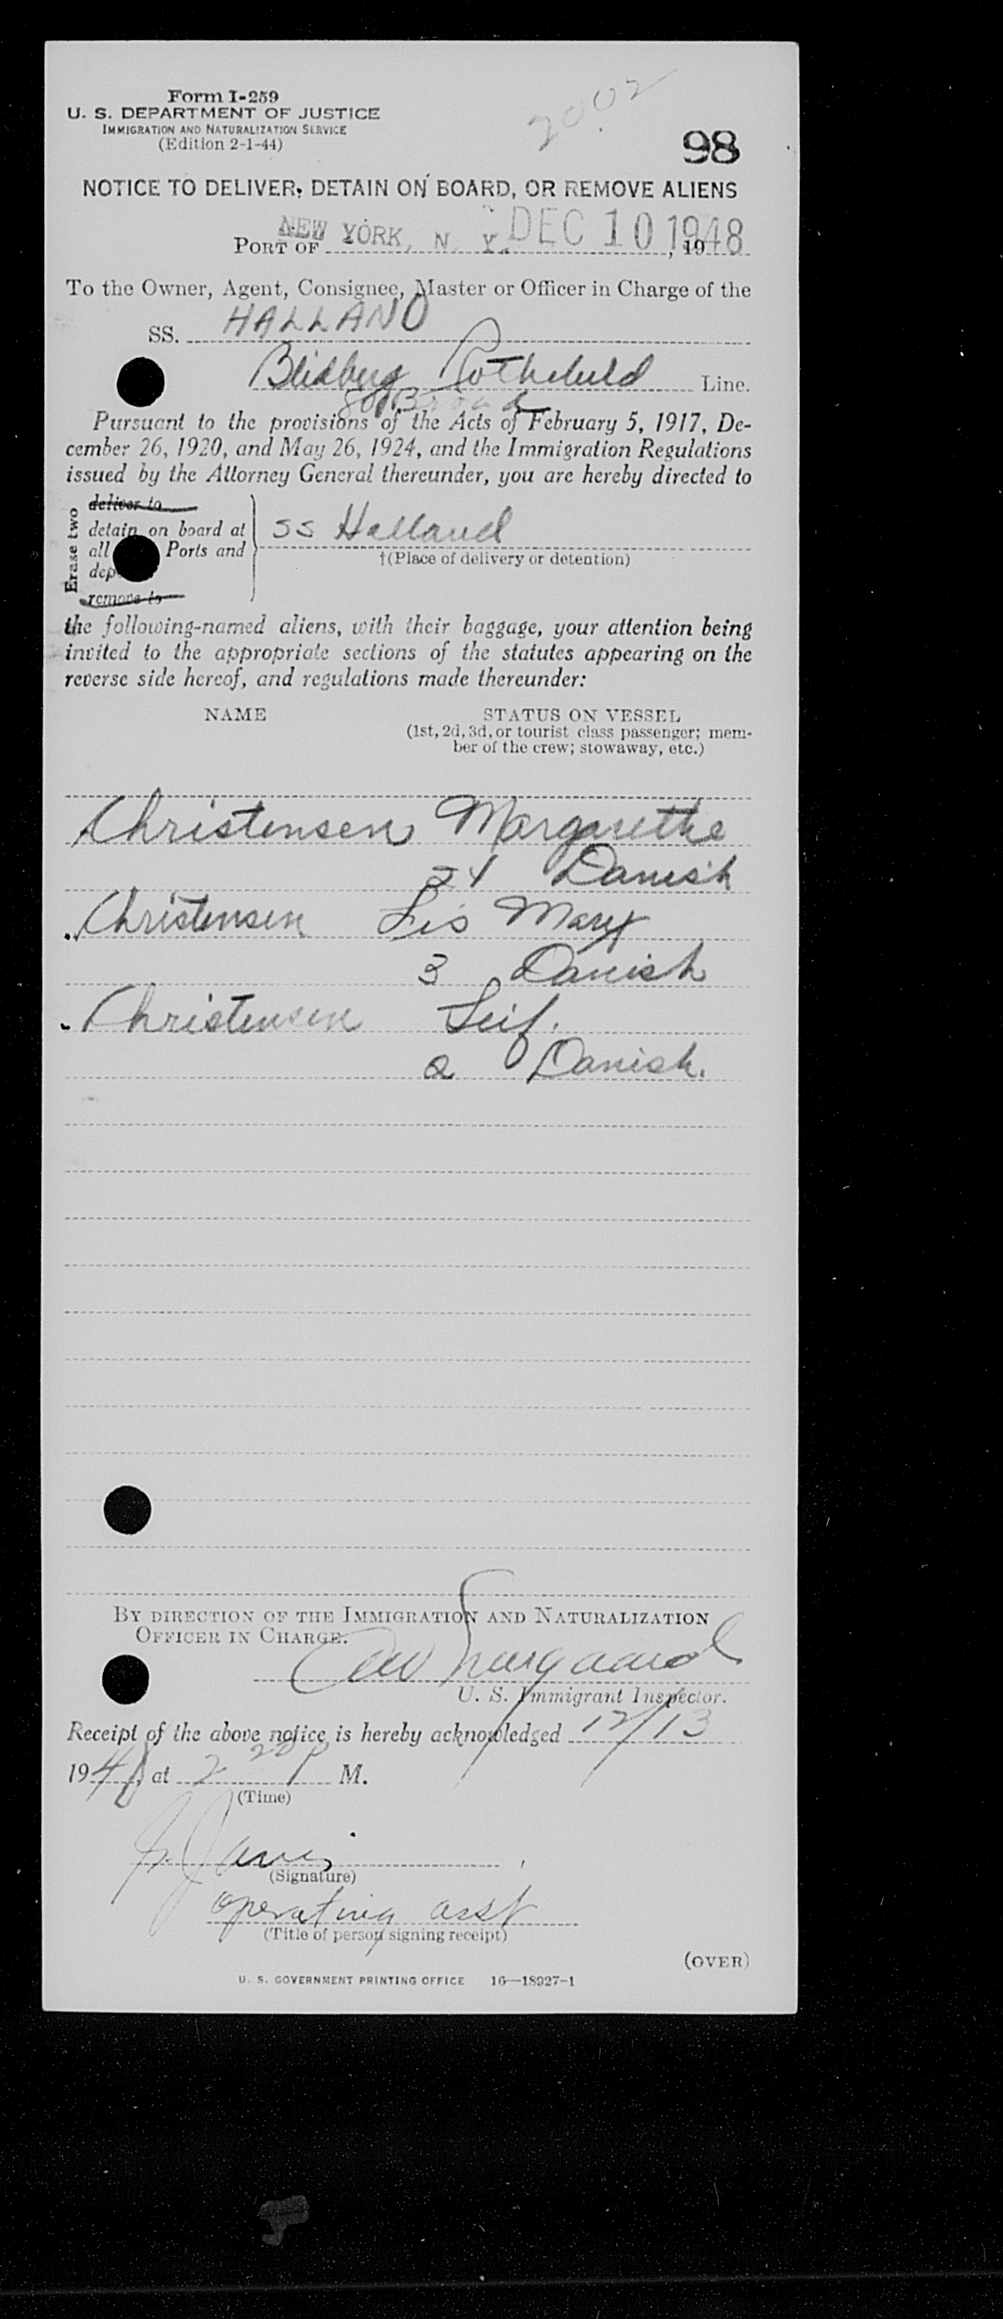 2002
Form I-259
U. S. DEPARTMENT OF JUSTICE
IMMIGRATION AND NATURALIZATION SERVICE
(Edition 2-1-44)
98
NOTICE TO DELIVER, DETAIN ON BOARD, OR REMOVE ALIENS
PORT OF NEW YORK, N. Y. DEC 10 1948, 19
To the Owner, Agent, Consignee, Master or Officer in Charge of the
SS. HALLAND
Blidberg Rothchild Line.
80 Broad
Pursuant to the provisions of the Acts of February 5, 1917, De-
cember 26, 1920, and May 26, 1924, and the Immigration Regulations
issued by the Attorney General thereunder, you are hereby directed to
Erase two
deliver to
detain on board at
all Ports and
dep
remove to
SS Halland
†(Place of delivery or detention)
the following-named aliens, with their baggage, your attention being
invited to the appropriate sections of the statutes appearing on the
reverse side hereof, and regulations made thereunder:
NAME STATUS ON VESSEL
(1st, 2d, 3d, or tourist class passenger; mem-
ber of the crew; stowaway, etc.)
Christensen Margarethe
Danish
Christensen Lis Mary
3 Danish
Christensen Leif.
2 Danish.
BY DIRECTION OF THE IMMIGRATION AND NATURALIZATION
OFFICER IN CHARGE.
U. S. Immigrant Inspector.
Receipt of the above notice is hereby acknowledged 12/13
1948, at 2 20 P M.
(Time)
(Signature)
operating asst
(Title of person signing receipt)
(OVER)
U. S. GOVERNMENT PRINTING OFFICE 16—18927-1